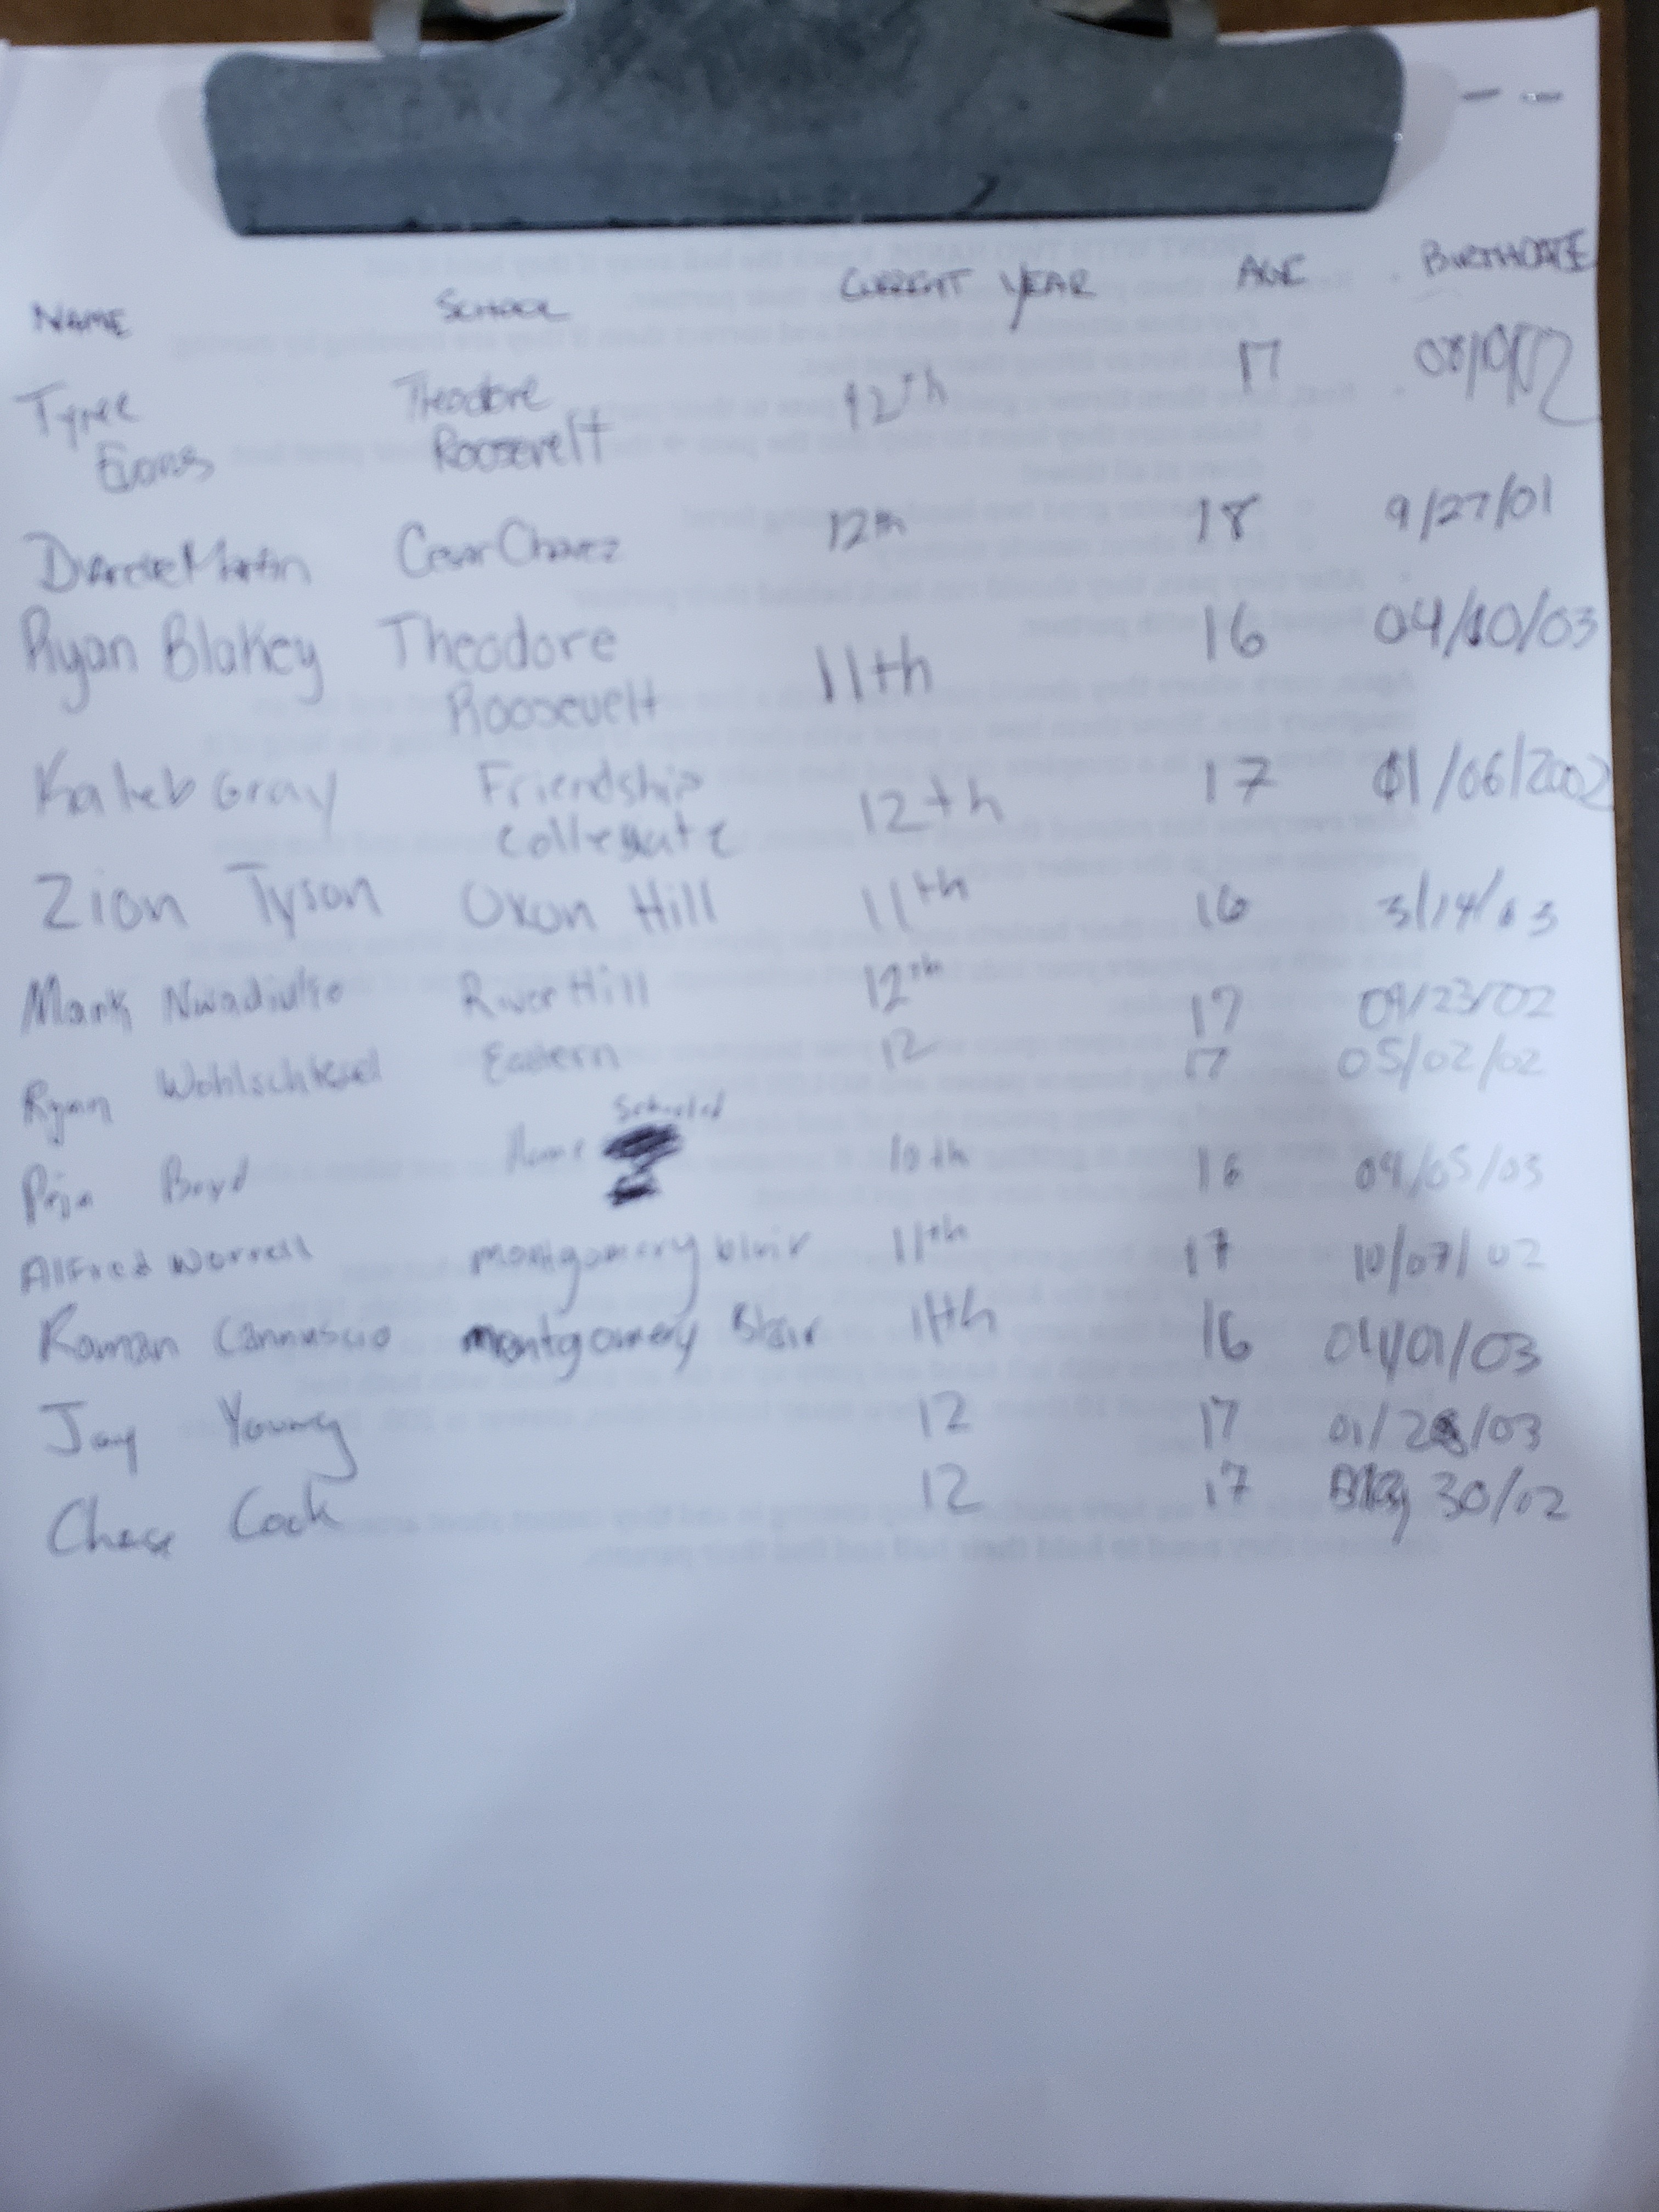 NAME SCHOOL CURRENT YEAR AGE BIRTHDATE
Tyree Theodore 12th 17
Evans Roosevelt
Martin Cesar Chavez 12th 18 9/27/01
Ryan Blakey Theodore 11th 16 04/10/03
Roosevelt
Kaleb Gray Friendship 12th 17 01/06/2002
Collegiate
Zion Tyson Oxon Hill 11th 16 3/14/03
Mark River Hill 12th 17 09/23/02
Ryan Eastern 12 17 05/02/02
Schooled
Boyd Home 10th 16 09/05/03
Alfred Worrell montgomery blair 11th 17 10/07/02
Roman Cannuscio montgomery Blair 11th 16 04/01/03
Jay Young 12 17 01/28/03
Chase Cook 12 17 30/02